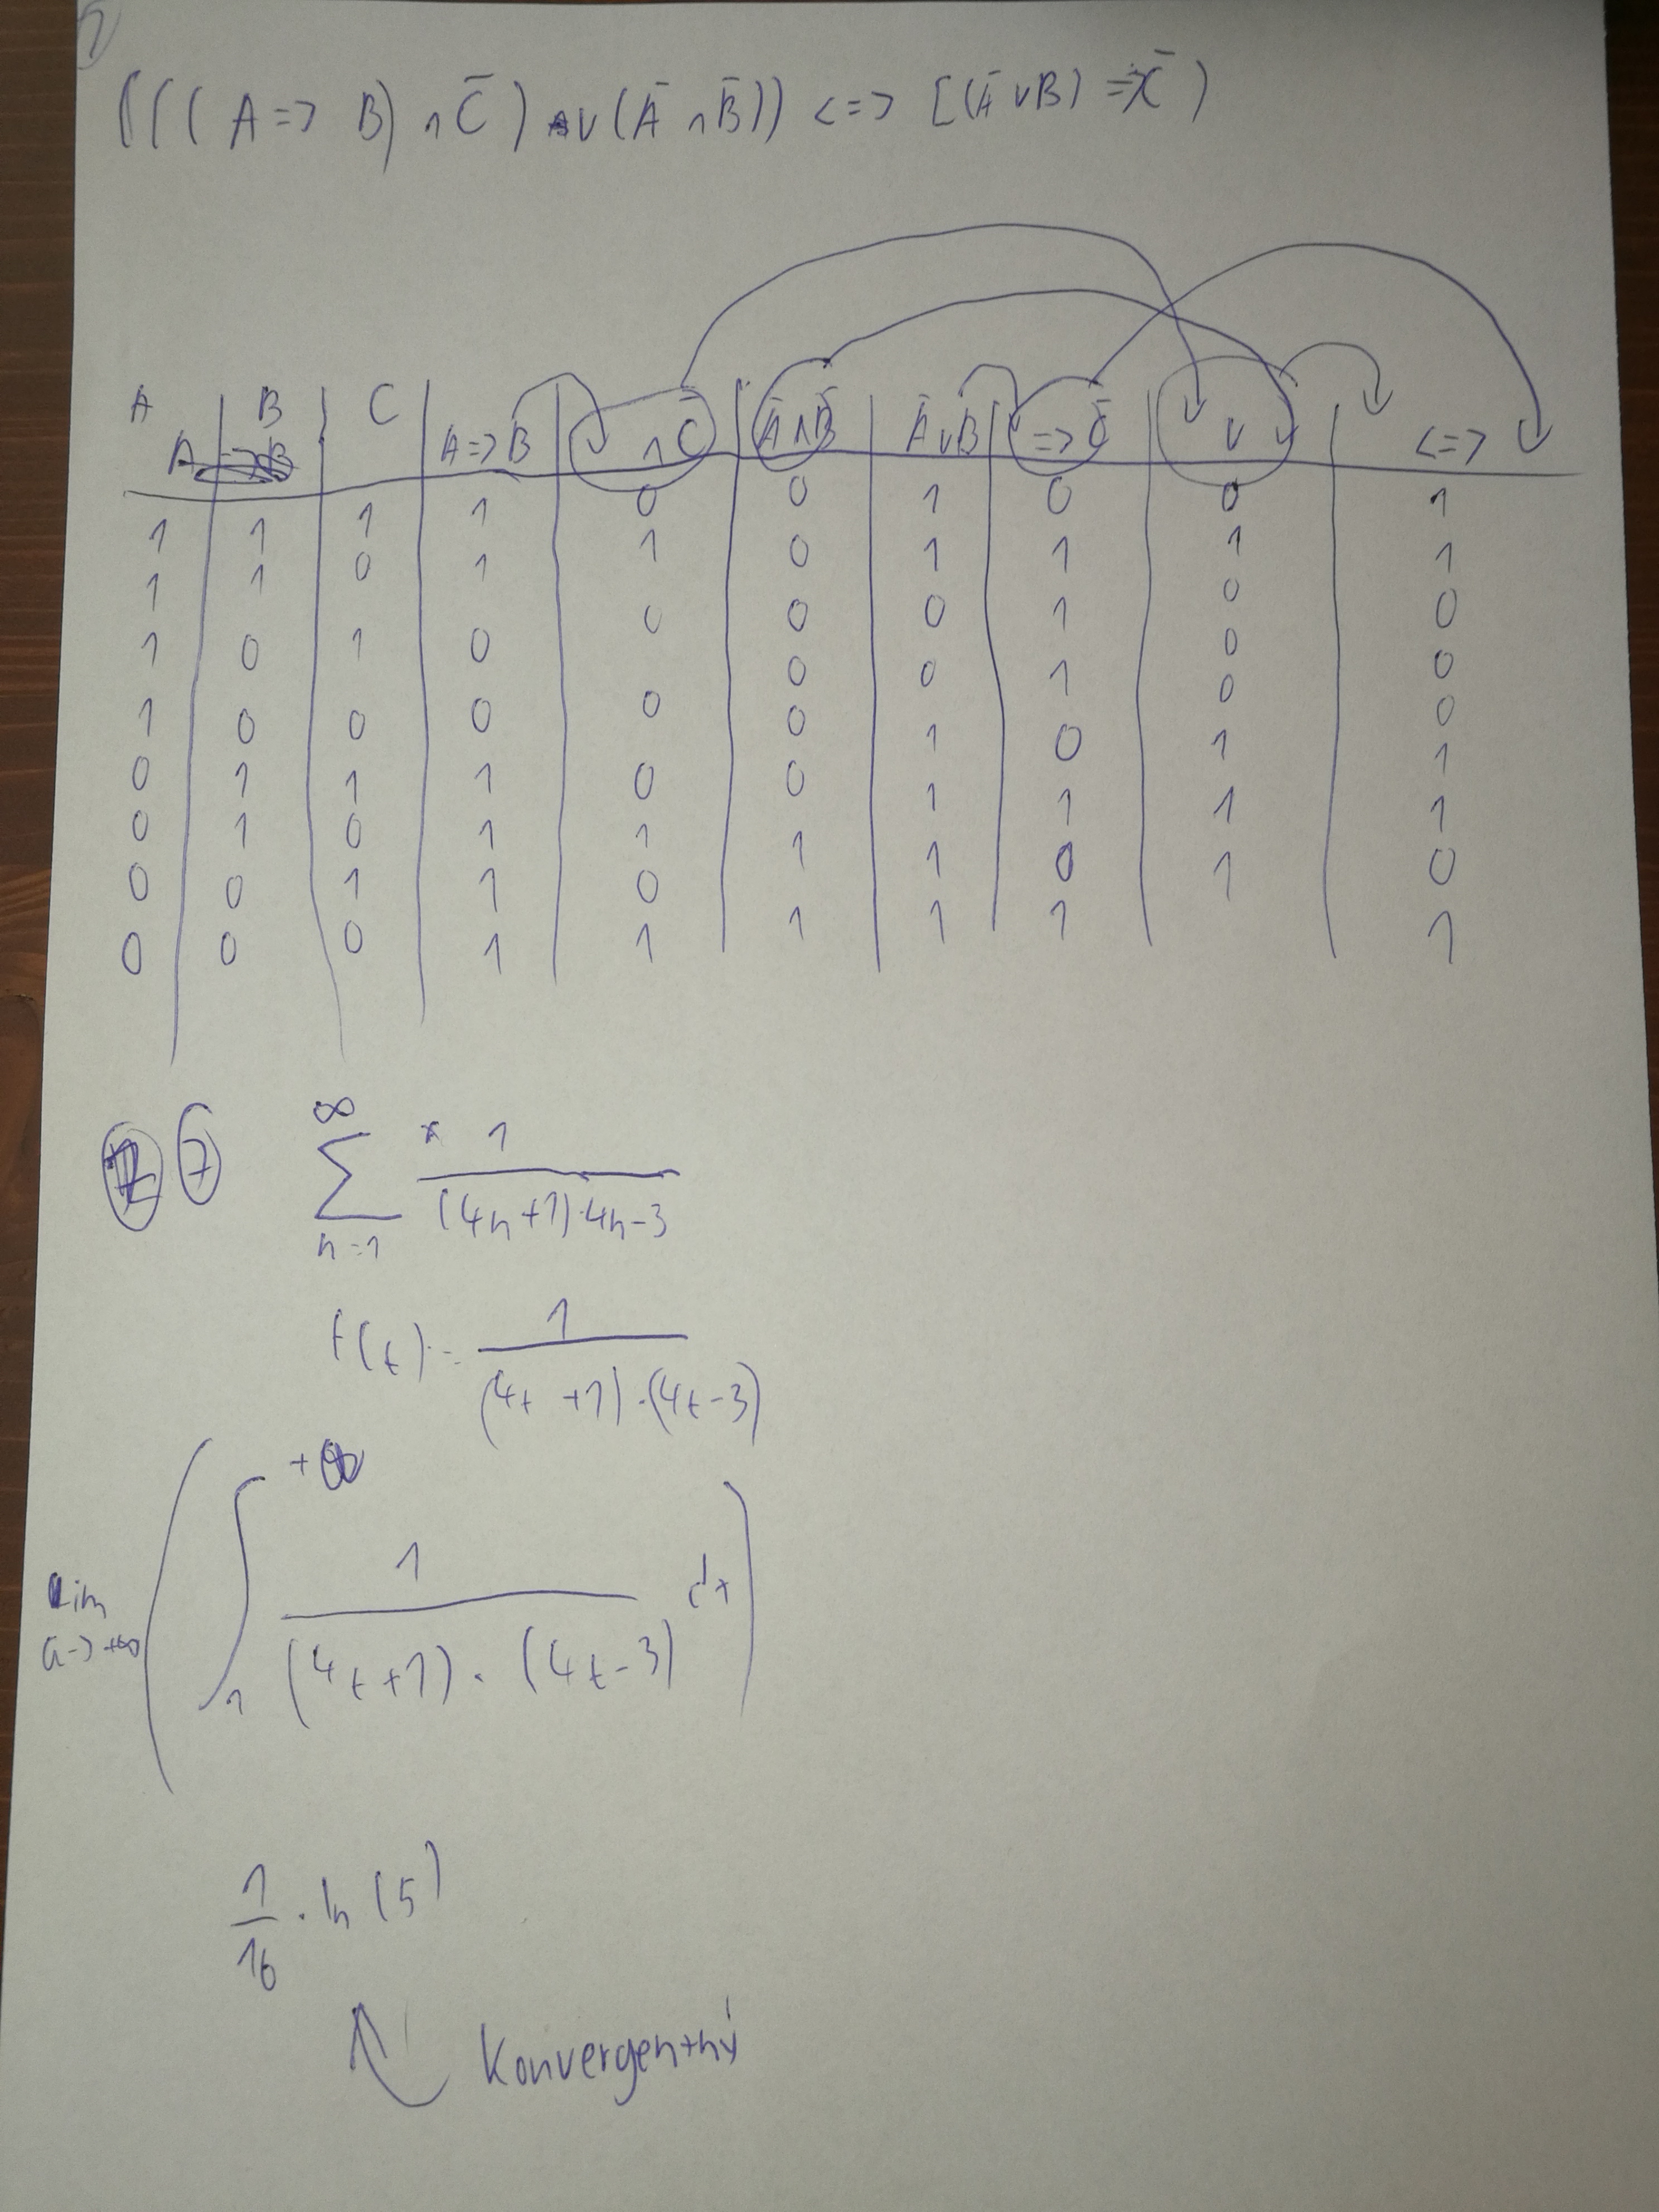 1)
(((A=> B) ∧ C̄) ∨ (Ā ∧ B̄)) <=> [(Ā ∨ B) => C̄)
A | B | C | A=>B | ∧ C̄ | Ā ∧ B̄ | Ā ∨ B | => C̄ | ∨ | <=>
1 | 1 | 1 | 1 | 0 | 0 | 1 | 0 | 0 | 1
1 | 1 | 0 | 1 | 1 | 0 | 1 | 1 | 1 | 1
1 | 0 | 1 | 0 | 0 | 0 | 0 | 1 | 0 | 0
1 | 0 | 0 | 0 | 0 | 0 | 0 | 1 | 0 | 0
0 | 1 | 1 | 1 | 0 | 0 | 1 | 0 | 0 | 0
0 | 1 | 0 | 1 | 1 | 0 | 1 | 1 | 1 | 1
0 | 0 | 1 | 1 | 0 | 1 | 1 | 0 | 1 | 1
0 | 0 | 0 | 1 | 1 | 1 | 1 | 1 | 1 | 0
1
7 ∞ ∑ n=1 1 / (4n+1)·4n-3
f(t) = 1 / (4t +1)·(4t-3)
lim a->+∞ ( ∫ 1 +∞ 1 / (4t+1) · (4t-3) dt )
1/16 · ln(5)
Konvergentný